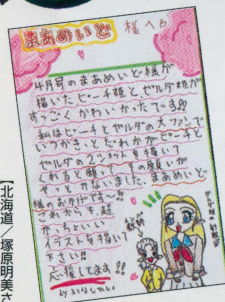 まあめいど 様へ
4月号のまあめいど様が
描いたピーチ姫とゼルダ姫が
すっごくかわいかったです
私はピーチとゼルダの大ファンで
いつかきっとだれかがピーチと
ゼルダの2ショットを描いて
くれると願って
やっとかないました まあめいど
様のおかげです
これからも、超
かっちょいい
イラストを描いて
下さい!!
応援してます
【北海道/塚原明美さ